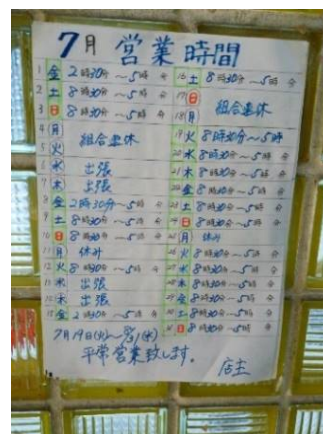 7月 営業時間
1 金 2時30分〜5時 分
2 土 8時30分〜5時 分
3 日 8時30分〜5時 分
4 月 組合連休
5 火
6 水 出張
7 木 出張
8 金 2時30分〜5時 分
9 土 8時30分〜5時 分
10 日 8時30分〜5時 分
11 月 休み
12 火 8時30分〜5時 分
13 水 出張
14 木 出張
15 金 2時30分〜5時 分
16 土 8時30分〜5時 分
17 日
18 月 組合連休
19 火 8時30分〜5時
20 水 8時30分〜5時 分
21 木 8時30分〜5時 分
22 金 8時30分〜5時 分
23 土 8時30分〜5時 分
24 日 8時30分〜5時 分
25 月 休み
26 火 8時30分〜5時 分
27 水 8時30分〜5時 分
28 木 8時30分〜5時 分
29 金 8時30分〜5時 分
30 土 8時30分〜5時 分
31 日 8時30分〜5時 分
7月19日(火)〜
平常営業致します。
店主